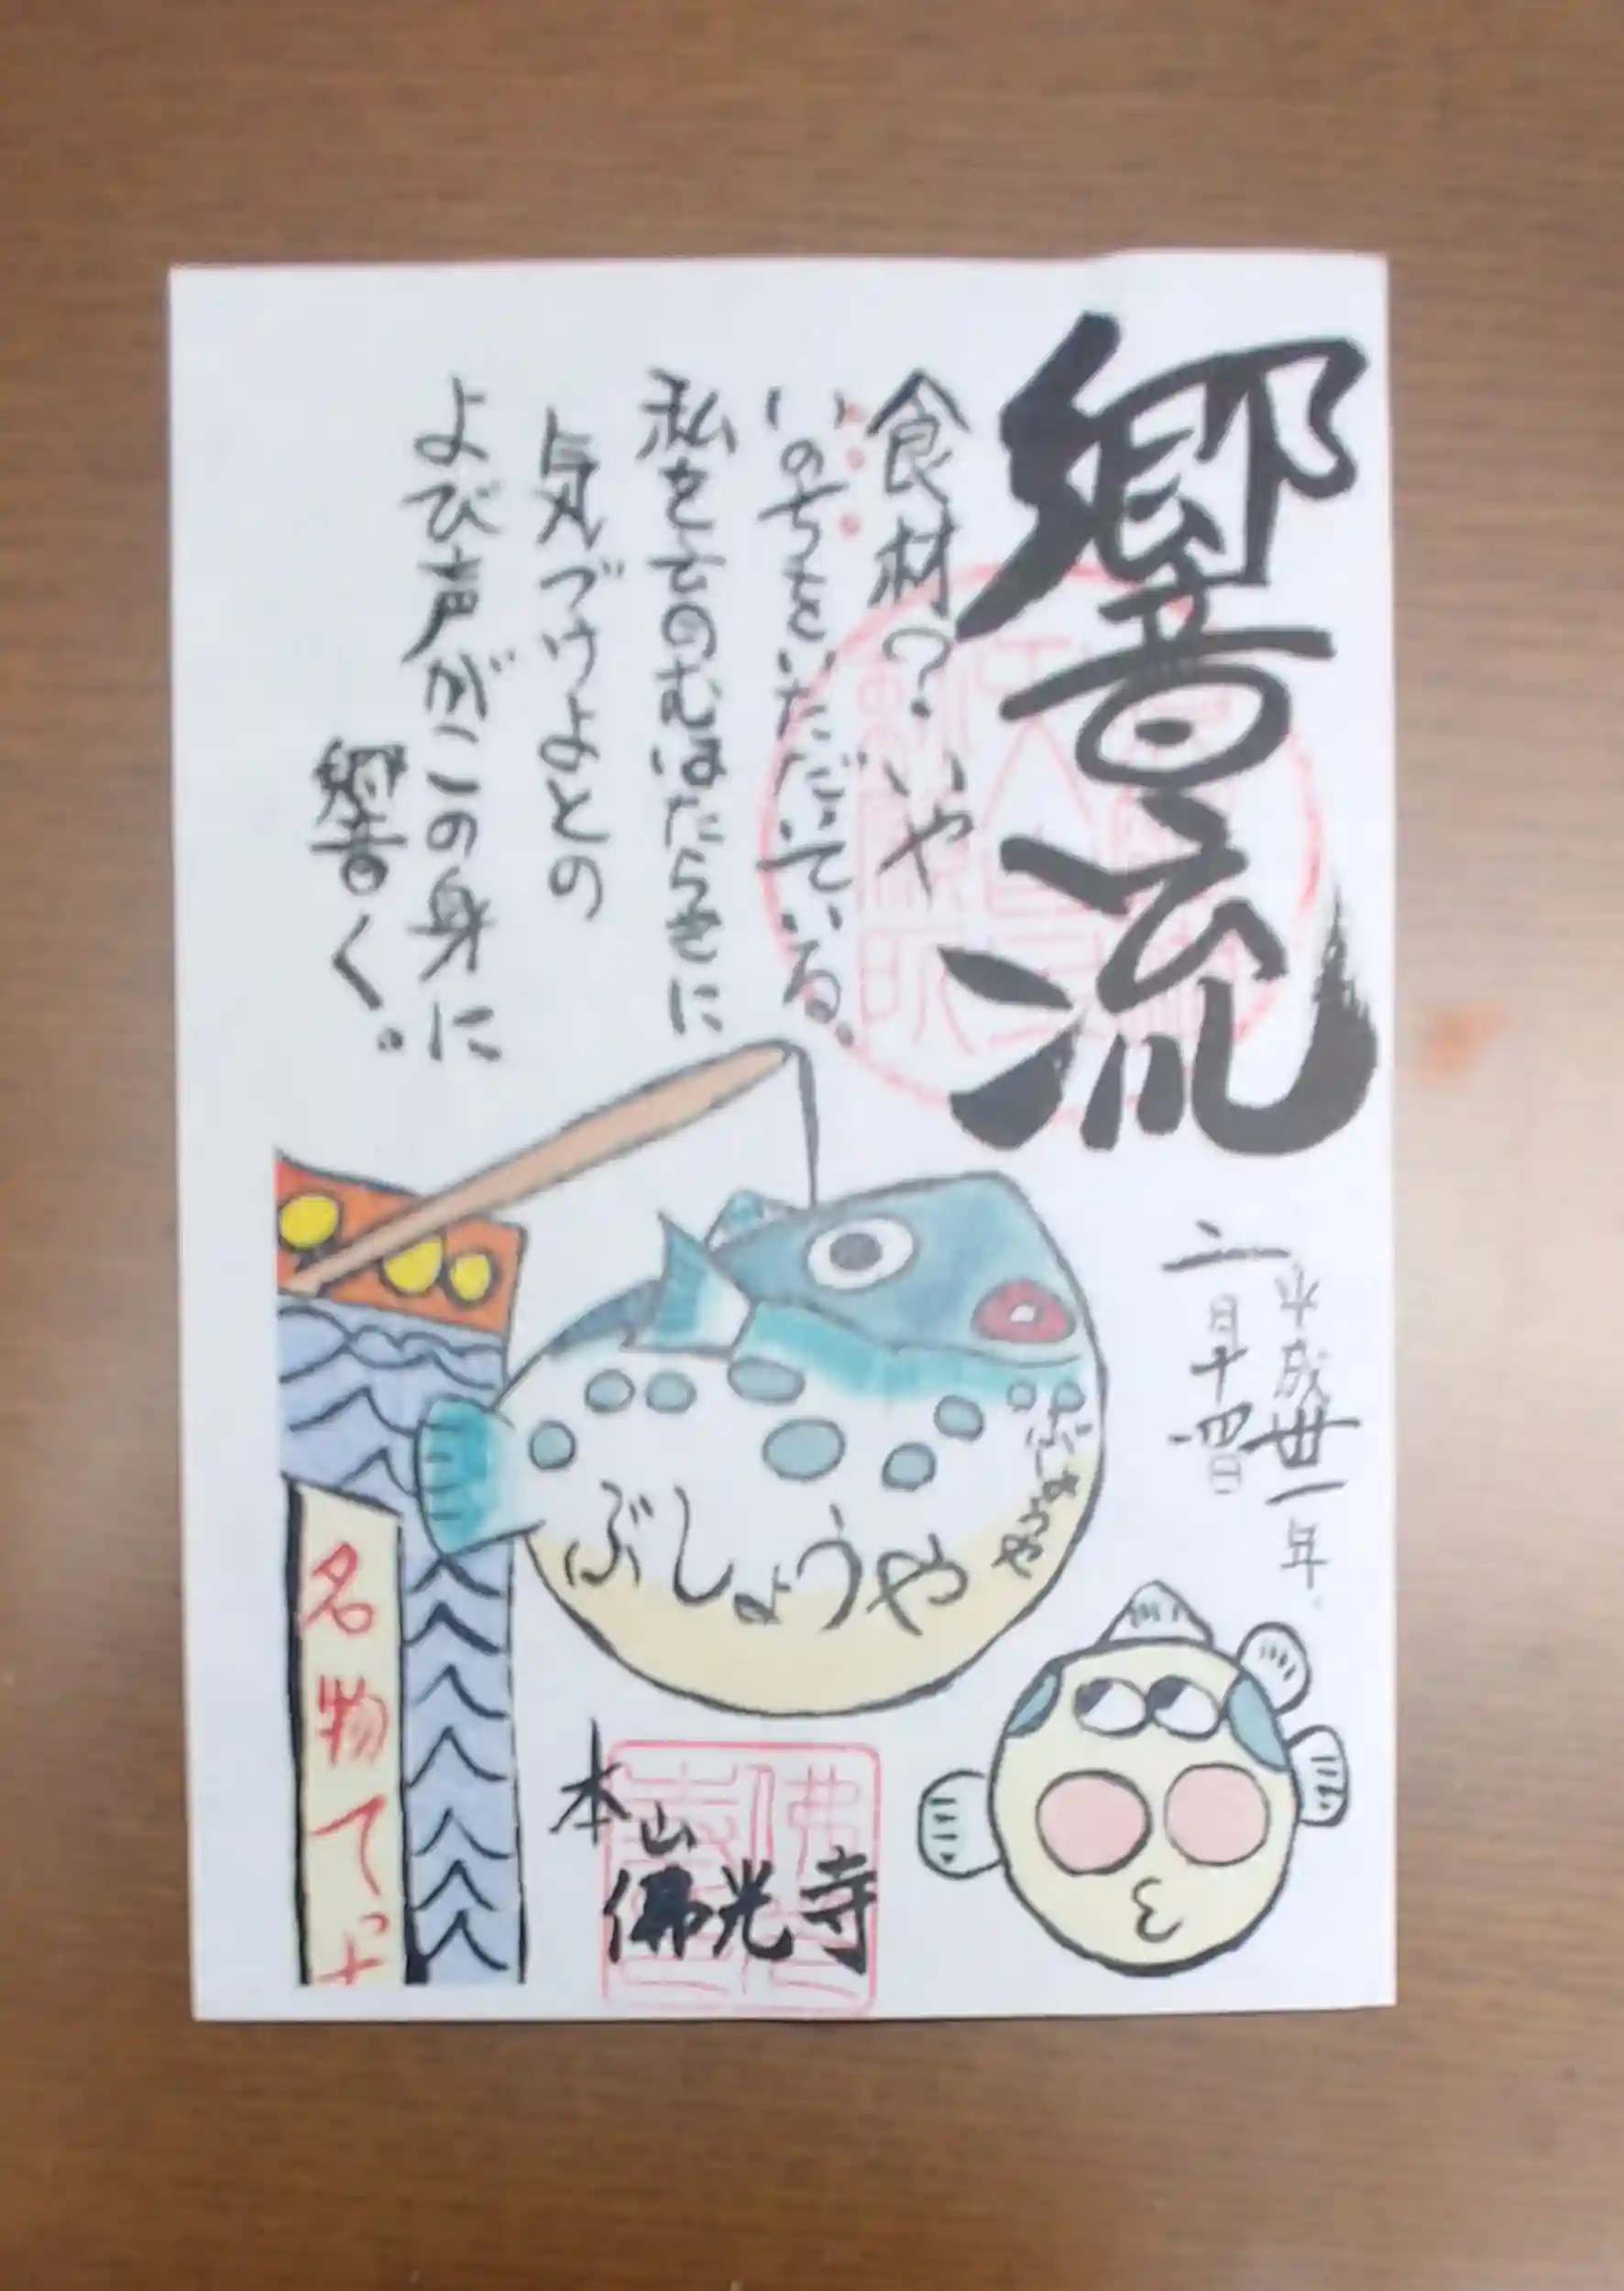 響流
食材?いや
いのちをいただいている。
私をそのむはたらきに
気づけよとの
よび声がこの身に
響く。
平成丗一年
二月十四日
ぶしょうや
名物てっ
本山
佛光寺